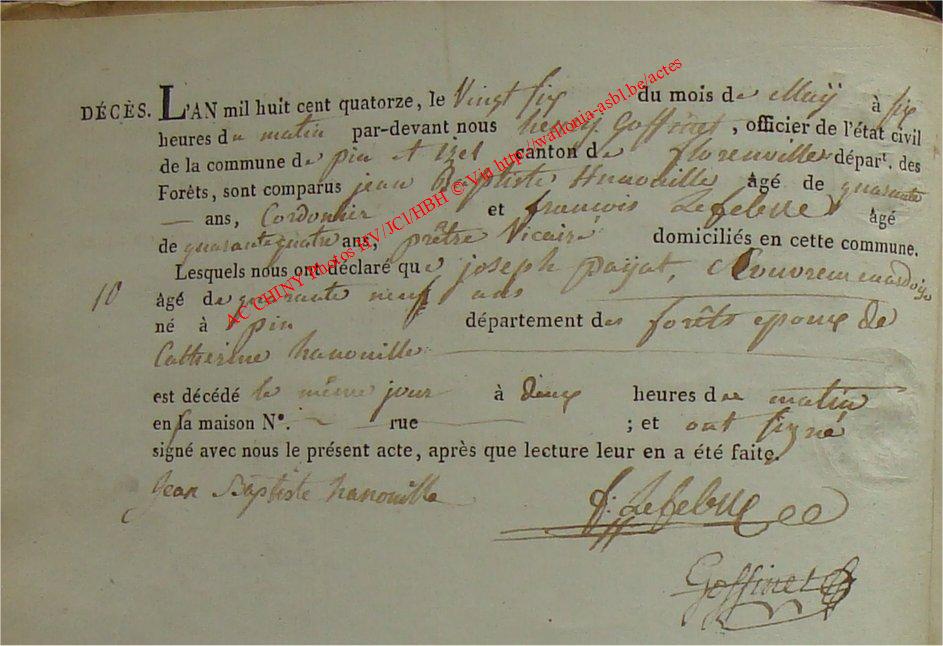 DÉCÈS. L'AN mil huit cent quatorze, le Vingt six du mois de Maÿ à six
heures du matin par-devant nous henry Goffinet, officier de l'état civil
de la commune de pin et izel canton de florenville départ. des
Forêts, sont comparus jean Baptiste Hanouille âgé de quarante
— ans, Cordonnier et francois Lefebvre âgé
de quarante quatre ans, prêtre Vicaire domiciliés en cette commune.
Lesquels nous ont déclaré que joseph payat, Couvreur
10 âgé de quarante neuf ans
né à pin département des forêts epoux de
Catherine hanouille
est décédé le même jour à deux heures du matin
en sa maison N°. rue ; et ont signé
signé avec nous le présent acte, après que lecture leur en a été faite.
Jean Baptiste hanouille
f: Lefebvre
Goffinet
AC CHINY Photos HV/JCl/HBH © Via http://wallonia-asbl.be/actes